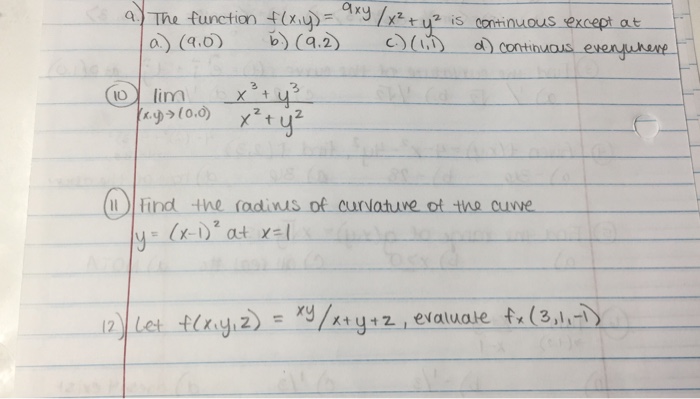 9.) The function f(x,y) = 9xy/x² + y² is continuous except at
a.) (9,0) b.) (9,2) c.) (1,1) d) continuous everywhere
10 lim (x,y)→(0,0) x³ + y³ / x² + y²
11 Find the radius of curvature of the curve
y = (x-1)² at x=1
12) Let f(x,y,z) = xy/x+y+z, evaluate fx (3,1,-1)